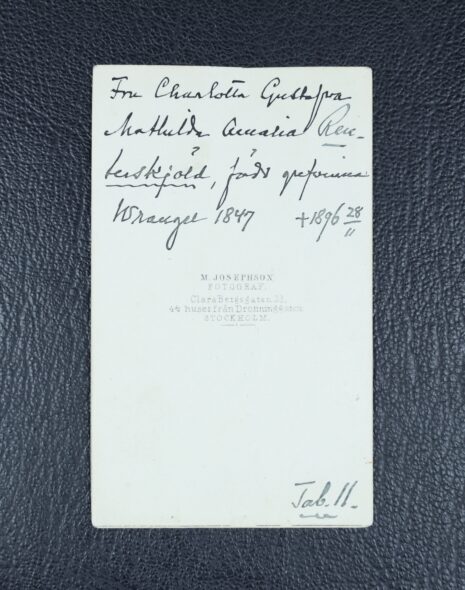 Fru Charlotta Gustafva
Mathilda Amalia Reu-
terskjöld, född grefvinna
Wrangel 1847 †1896 28/11
M. JOSEPHSON
FOTOGRAF.
Clara Bergsgatan 23,
4de huset från Drottninggatan
STOCKHOLM.
Tab. 11.